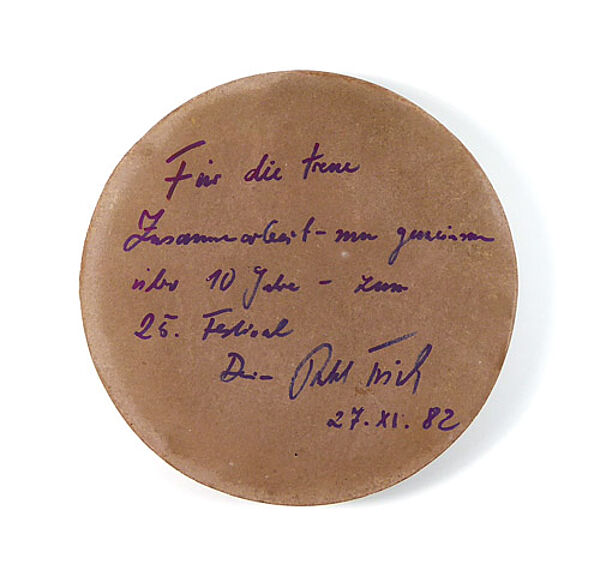 Für die treue
Zusammenarbeit - nun gemeinsam
über 10 Jahre - zum
25. Festival
Dein
27. XI. 82